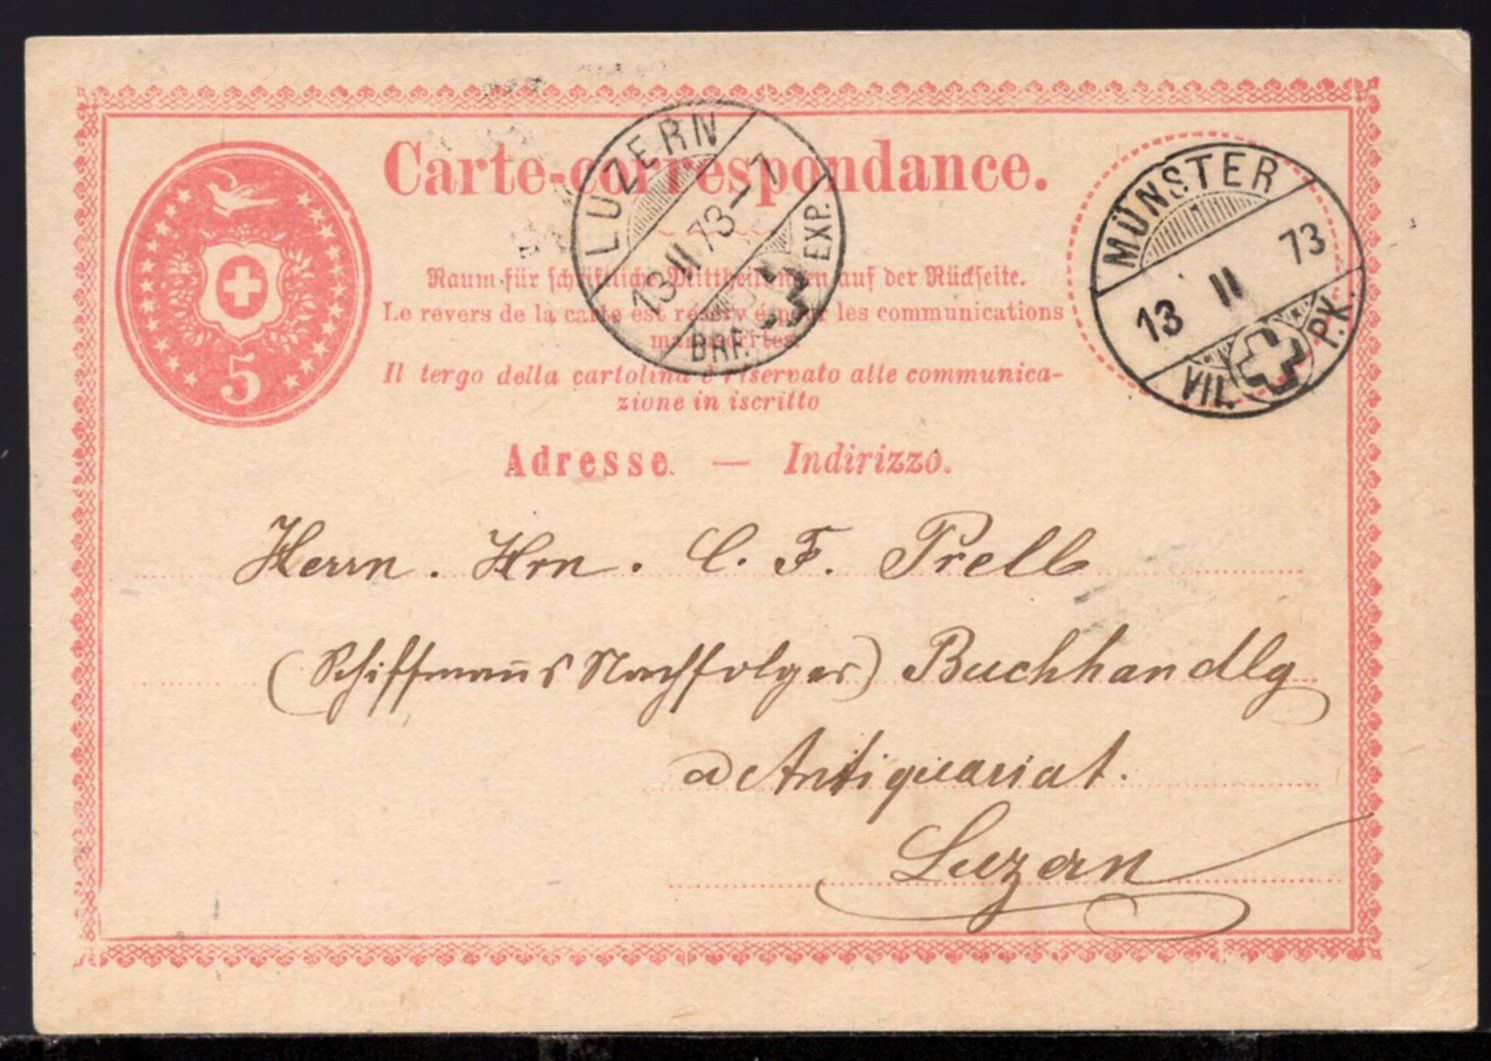 Carte-correspondance.
5
Raum für schriftliche Mittheilungen auf der Rückseite.
Le revers de la carte est réservé pour les communications
manuscrites.
Il tergo della cartolina è riservato alle communica-
zione in iscritto
LUZERN
13 II 73 – 7
BRF. EXP.
MÜNSTER
13 II 73
VII. P.K.
Adresse. — Indirizzo.
Herrn. Hrn. C. F. Prell
(Schiffmanns Nachfolger) Buchhandlg
Antiquariat.
Luzern